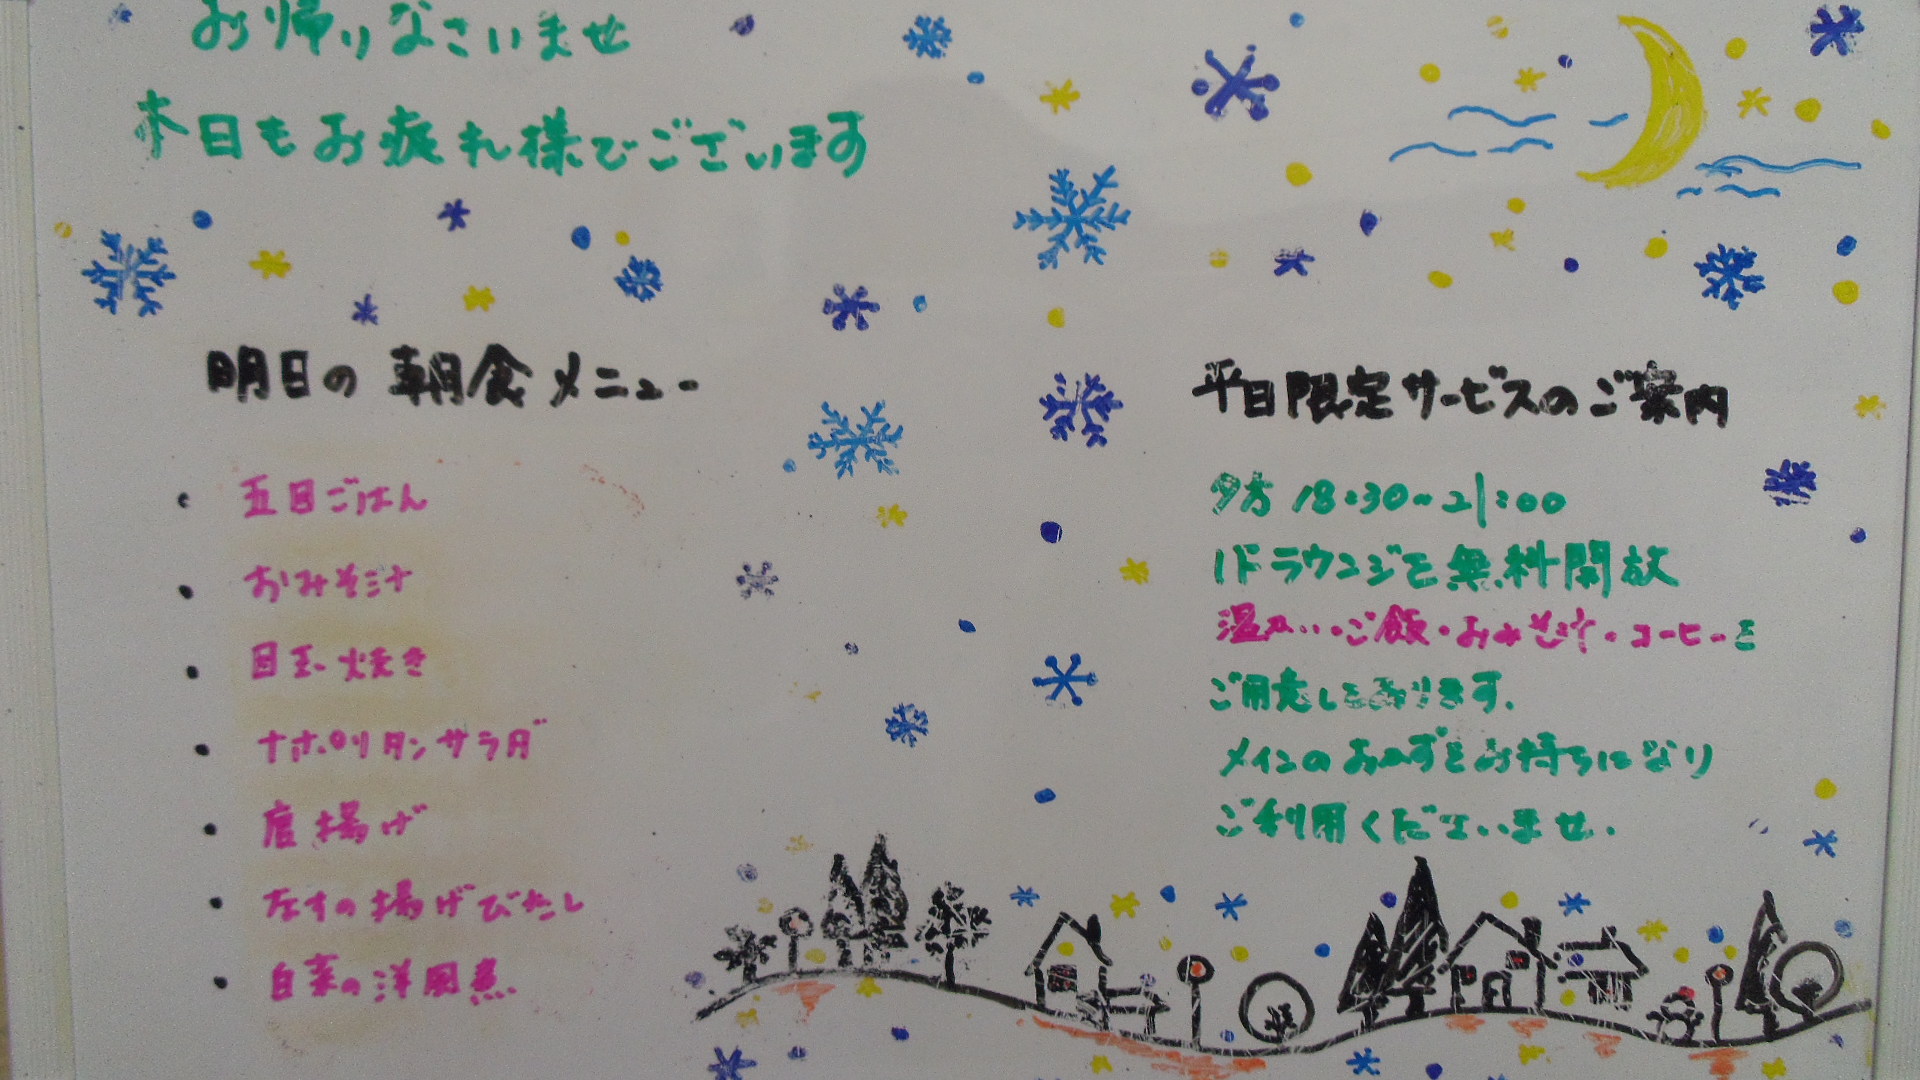 お帰りなさいませ
本日もお疲れ様でございます
明日の朝食メニュー
・五目ごはん
・おみそ汁
・目玉焼き
・ナポリタンサラダ
・唐揚げ
・なすの揚げびたし
・白菜の洋風煮
平日限定サービスのご案内
夕方18:30~21:00
1Fラウンジを無料開放
温かい・ご飯・おみそ汁・コーヒーを
ご用意しております。
メインのおかずをお持ちになり
ご利用くださいませ.